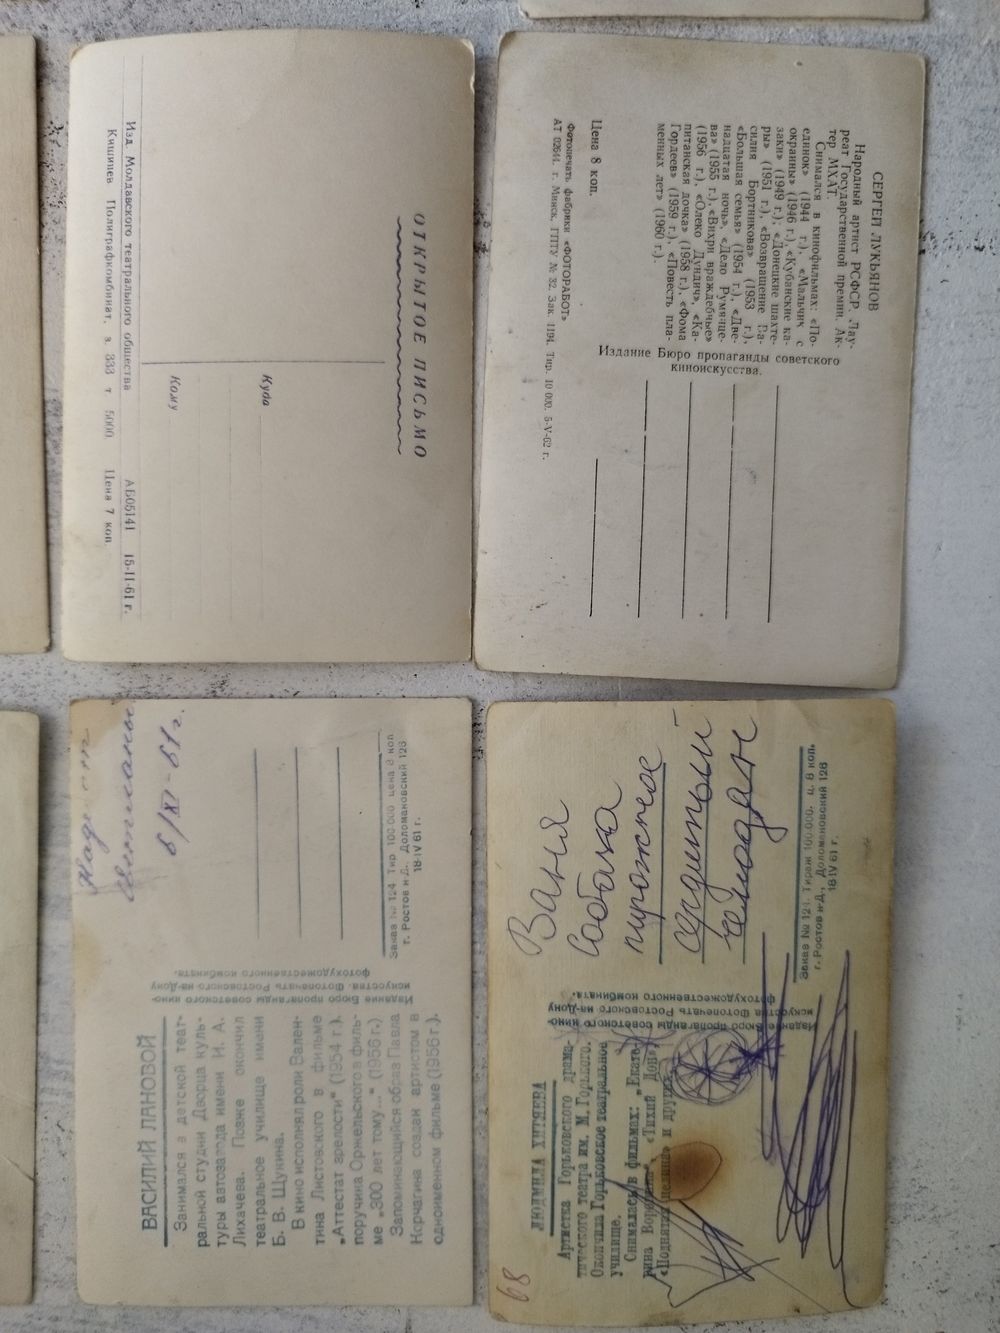 ОТКРЫТОЕ ПИСЬМО
Куда
Кому
Изд. Молдавского театрального общества АБ05141 15-II-61 г.
Кишинев Полиграфкомбинат. з. 333 т 5000 Цена 7 коп.
СЕРГЕЙ ЛУКЬЯНОВ
Народный артист РСФСР. Лау-
реат Государственной премии. Ак-
тер МХАТ.
Снимался в кинофильмах: «По-
единок» (1944 г.), «Мальчик с
окраины» (1946 г.), «Кубанские ка-
заки» (1949 г.); «Донецкие шахте-
ры» (1951 г.), «Возвращение Ва-
силия Бортникова» (1953 г.),
«Большая семья» (1954 г.), «Две-
надцатая ночь», «Дело Румянце-
ва» (1955 г.), «Вихри враждебные»
(1956 г.), «Олеко Дундич», «Ка-
питанская дочка» (1958 г.), «Фома
Гордеев» (1959 г.), «Повесть пла-
менных лет» (1960 г.).
Цена 8 коп.
Фотопечать фабрики «ФОТОРАБОТ»
АТ 02644. г. Минск, ГПТУ № 32. Зак. 1194. Тир. 10 000. 5-V-62 г.
Издание Бюро пропаганды советского
киноискусства.
ВАСИЛИЙ ЛАНОВОЙ
Занимался в детской теат-
ральной студии Дворца куль-
туры автозавода имени И. А.
Лихачева. Позже окончил
театральное училище имени
Б. В. Щукина.
В кино исполнял роли Вален-
тина Листовского в фильме
„Аттестат зрелости" (1954 г.),
поручика Оржельского в филь-
ме „300 лет тому..." (1956 г.)
Запоминающийся образ Павла
Корчагина создан артистом в
одноименном фильме (1956 г.).
Издание Бюро пропаганды советского кино-
искусства Фотопечать Ростовского н/Дону
фотохудожественного комбината.
6/XI-61 г.
Заказ № 124 Тир 100 000 цена 8 коп
г. Ростов н Д., Доломановский 126
18 IV 61 г.
ЛЮДМИЛА ХИТЯЕВА
Артистка Горьковского драма-
тического театра им. М. Горького.
Окончила Горьковское театральное
училище.
Снималась в фильмах: „Екате-
рина Воронина", «Тихий Дон»,
«Поднятая целина» и других
Издание Бюро пропаганды советского кино-
искусства Фотопечать Ростовского н/Дону
фотохудожественного комбината.
Ваня
собака
пирожное
сердитый
чемодан
Заказ № 124. Тираж 100.000- ц. 8 коп.
г. Ростов н-Д., Доломановский 126
18 IV 61 г.
68